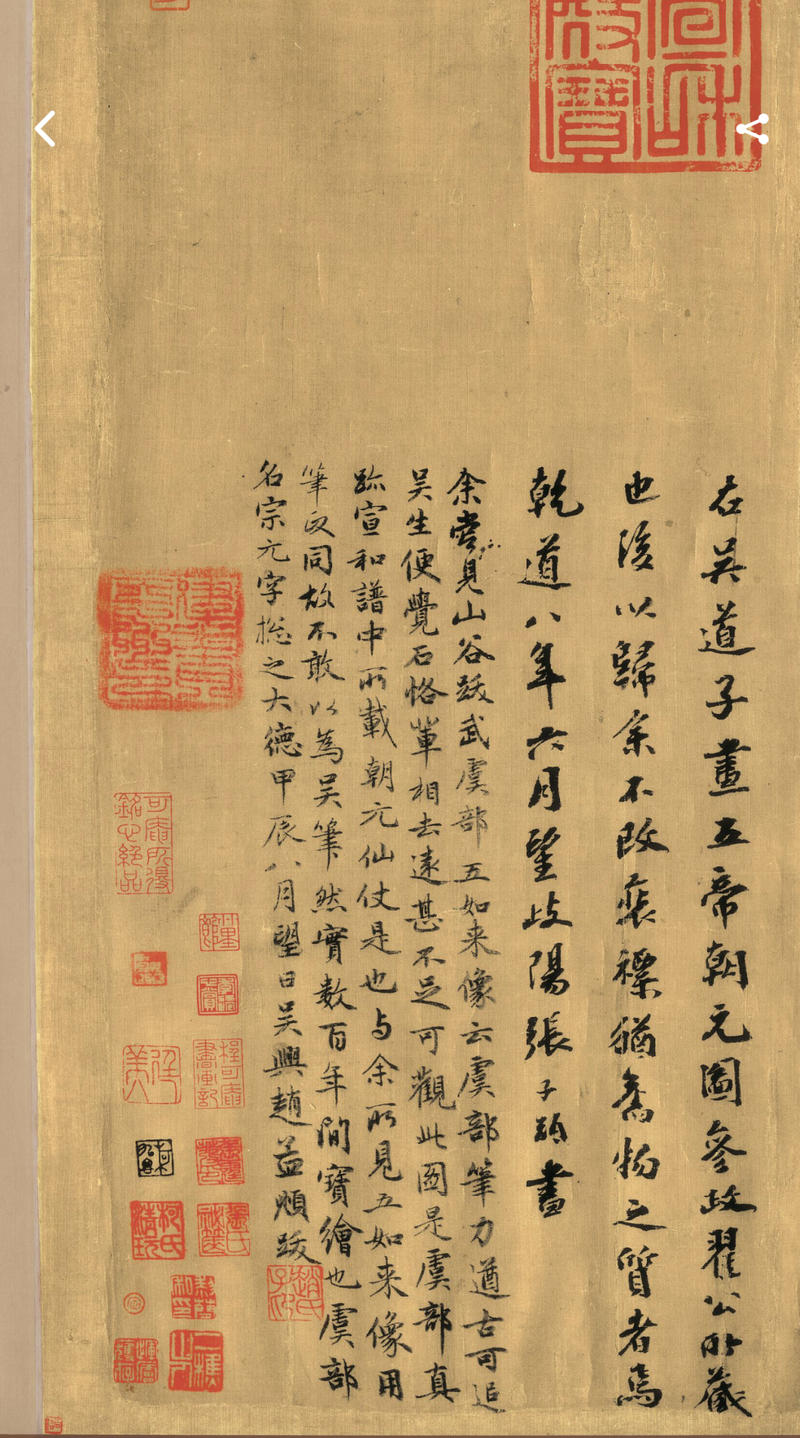 右吴道子畫五帝朝元圖叅政翟公所藏
也後以歸余不改褾褫猶舊物之質者焉
乾道八年六月望歧陽張子𤣱書
余嘗見山谷跋武虞部五如来像云虞部筆力遒古可追
吴生便覺石恪軰相去遠甚不足可觀此圖是虞部真
跡宣和譜中所載朝元仙仗是也与余所見五如来像用
筆政同故不敢以為吴筆然實數百年間寶繪也虞部
名宗元字揔之大德甲辰八月望日吴興趙孟頫跋
趙氏子昂